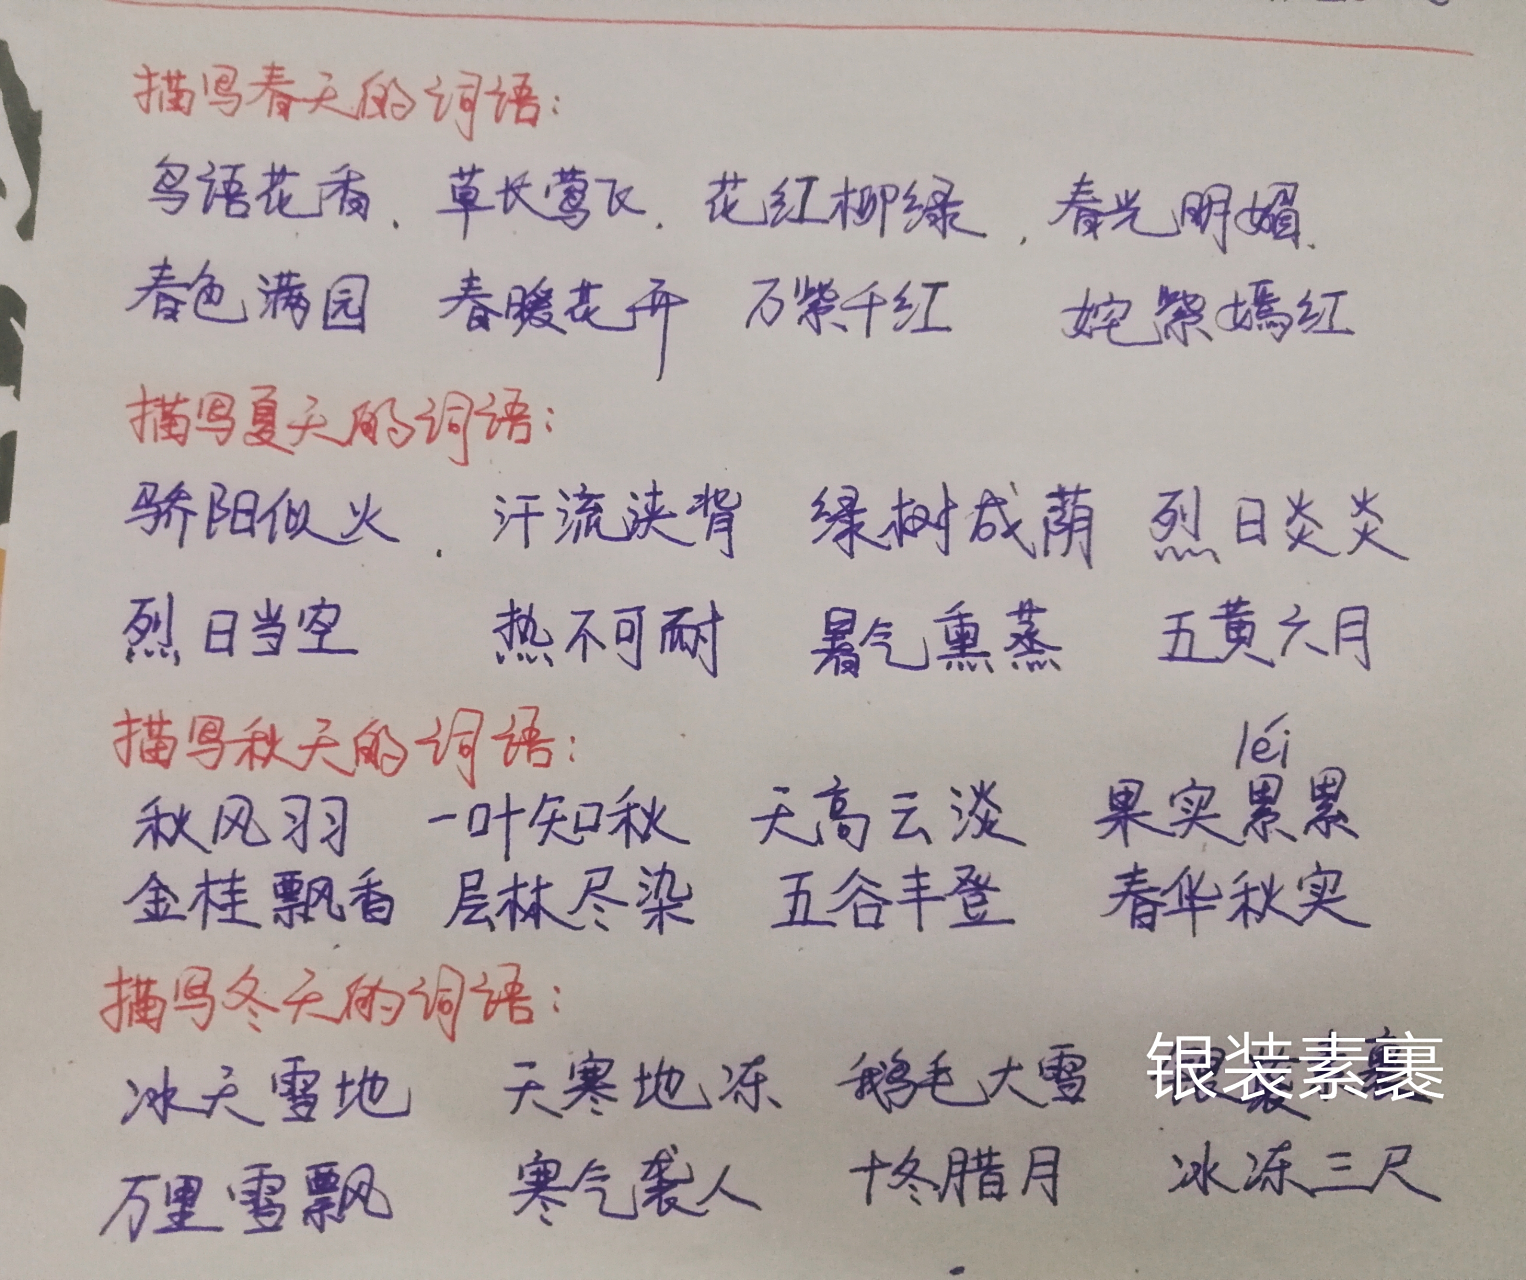 描写春天的词语:
鸟语花香、草长莺飞、花红柳绿、春光明媚、
春色满园 春暖花开 万紫千红 姹紫嫣红
描写夏天的词语:
骄阳似火、汗流浃背 绿树成荫 烈日炎炎
烈日当空 热不可耐 暑气熏蒸 五黄六月
描写秋天的词语:
léi
秋风习习 一叶知秋 天高云淡 果实累累
金桂飘香 层林尽染 五谷丰登 春华秋实
描写冬天的词语:
冰天雪地 天寒地冻 鹅毛大雪 银装素裹
万里雪飘 寒气袭人 十冬腊月 冰冻三尺